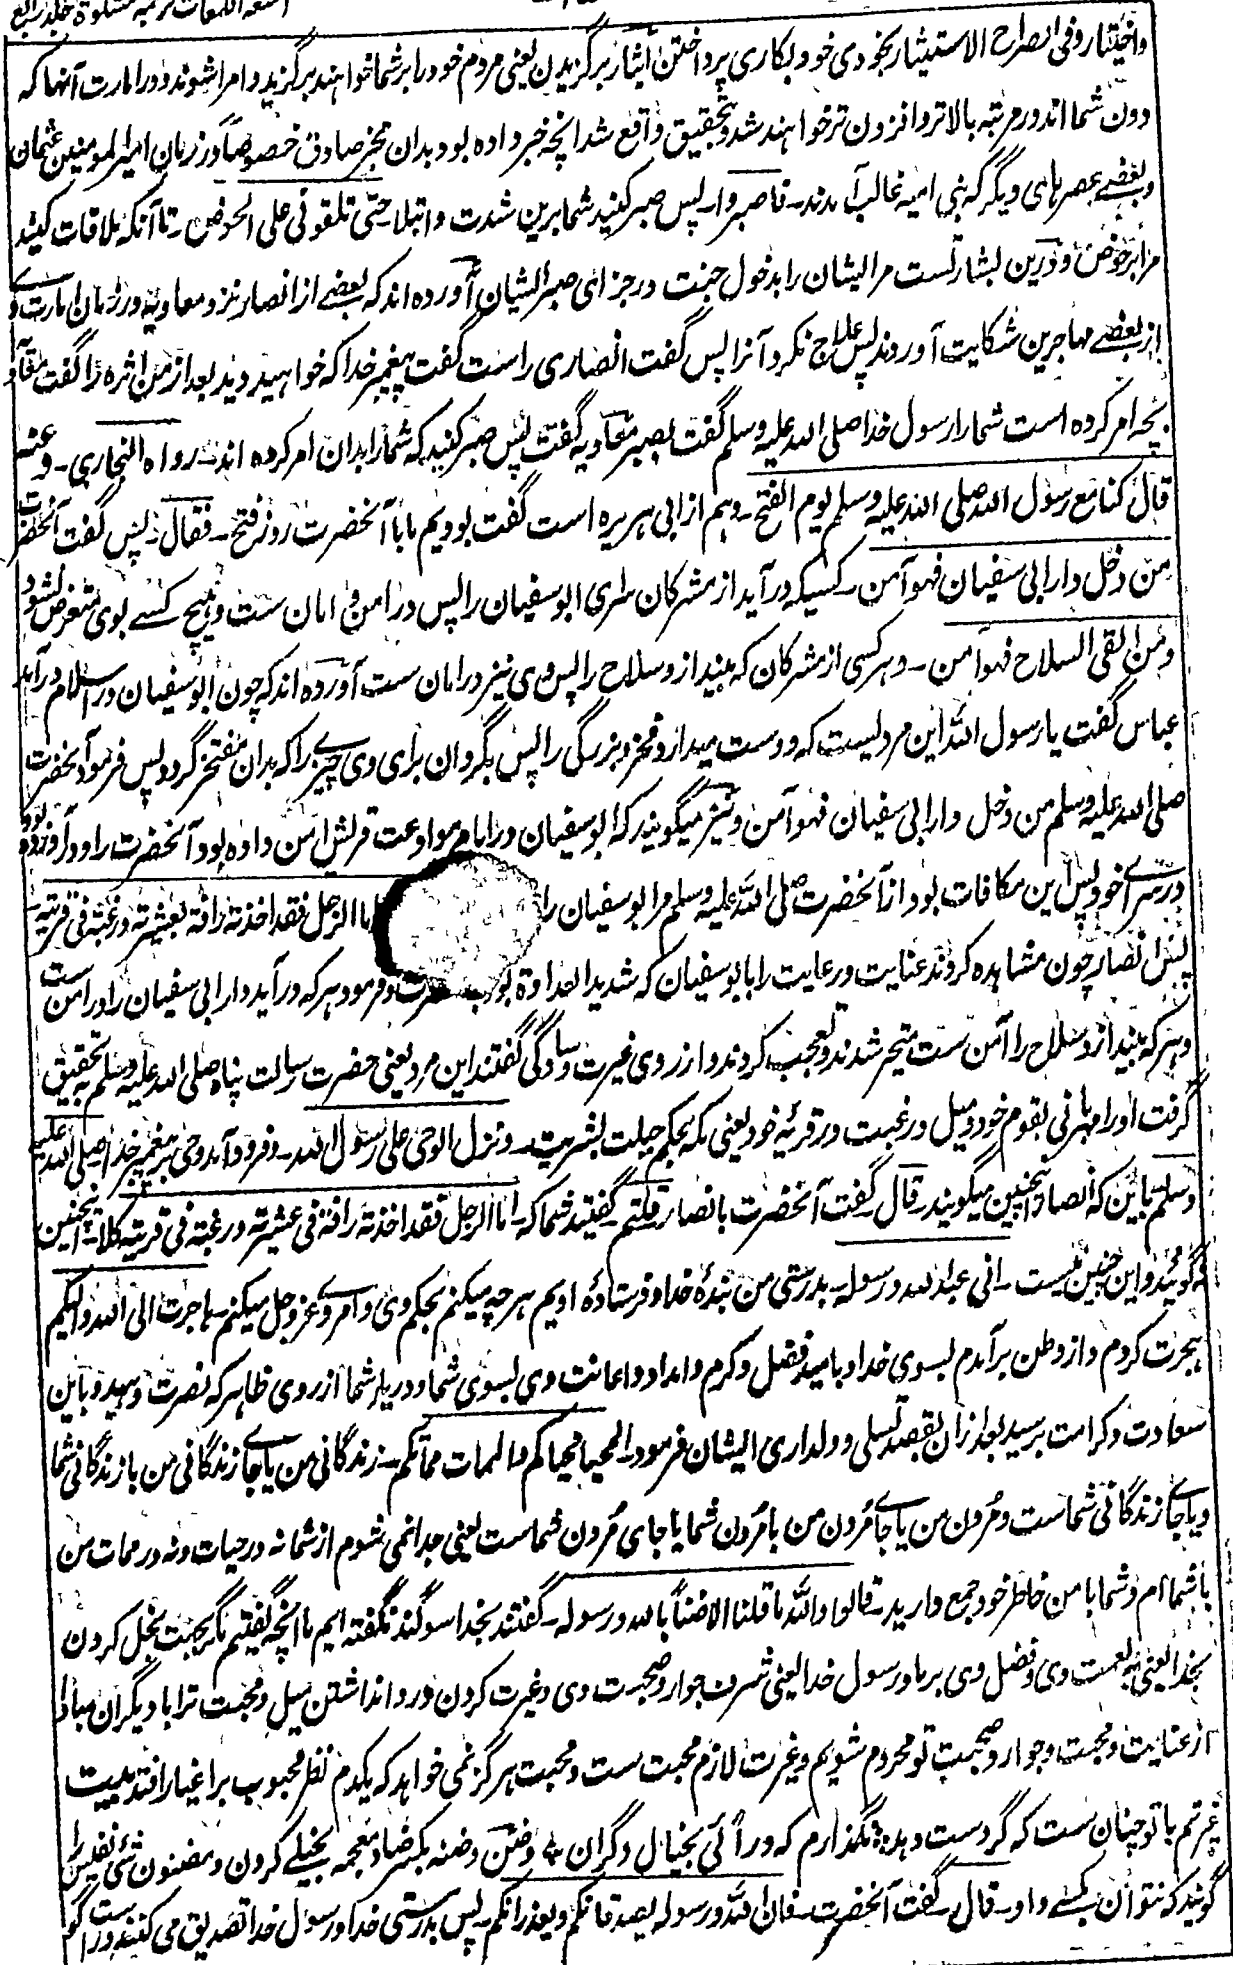 اشعة اللمعات ترجمه مشکوة جلد رابع
واختیار و فی الصراح الاستیثار بخودی خود بکاری پرداختن ایثار برگزیدن یعنی مردم خود را بر شما خواهند برگزید و امرا شوند و در امارت آنها که
دون شما اند در مرتبه بالاتر و افزون تر خواهند شد و بتحقیق واقع شد انچه خبر داده بود بدان مخبر صادق خصوصاً در زمان امیرالمومنین عثمان
و بعضے عصرهای دیگر که بنی امیه غالب آمدند ـ فاصبروا ـ پس صبر کنید شما برین شدت و ابتلا ـ حتی تلقونی علی الحوض ـ تا آنکه ملاقات کنید
مرا بر حوض و درین بشارتست مر ایشان را بدخول جنت در جزای صبر ایشان آورده اند که بعضے از انصار نزد معاویه در زمان امارت وے
از بعضے مهاجرین شکایت آوردند پس علاج نکرد آنرا پس گفت انصاری راست گفت پیغمبر خدا که خواهید دید بعد از من اثره را گفت معاویه
بچه امر کرده است شما را رسول خدا صلی الله علیه وسلم گفت بصبر معاویه گفت پس صبر کنید که شما را بدان امر کرده اند ـ رواه البخاری ـ وعنه
قال کنا مع رسول الله صلی الله علیه وسلم یوم الفتح ـ و هم از ابی هریره است گفت بودیم ما با آنحضرت روز فتح ـ فقال ـ پس گفت آنحضرت
من دخل دار ابی سفیان فهو آمن ـ کسیکه درآید از مشرکان سرای ابو سفیان را پس در امن و امان ست و هیچ کسے بوی متعرض نشود
ومن القی السلاح فهو آمن ـ و هر کسی از مشرکان که بیندازد سلاح را پس وی نیز در امان ست آورده اند که چون ابوسفیان در اسلام درآمد
عباس گفت یا رسول الله این مردیست که دوست میدارد فخر و بزرگی را پس بگردان برای وی چیزے را که بدان مفتخر گردد پس فرمود آنحضرت
صلی الله علیه وسلم من دخل دار ابی سفیان فهو آمن و نیز میگویند که ابوسفیان در ایام موادعت قریش امن داده بود آنحضرت را و درآورده بود
در سرای خود پس این مکافات بود از آنحضرت صلی الله علیه وسلم مر ابوسفیان را اما الرجل فقد اخذته رافة بعشیرته و رغبة فی قریته ـ
پس انصار چون مشاهده کردند عنایت و رعایت را بابوسفیان که شدید العداوة بود و فرمود هر که درآید دار ابی سفیان را در امن ست
و هر که بیندازد سلاح را آمن ست متحیر شدند و تعجب کردند و از روی غیرت و سادگی گفتند این مرد یعنی حضرت رسالت پناه صلی الله علیه وسلم به تحقیق
گرفت او را مهربانی بقوم خود و میل و رغبت در قریۀ خود یعنی مکه بحکم جبلت بشریت ـ و نزل الوحی علی رسول الله ـ و فرود آمد وحی بر پیغمبر خدا صلی الله علیه
وسلم باین که انصار همچنین میگویند ـ قال ـ گفت آنحضرت بانصار ـ قلتم ـ گفتید شما که ـ اما الرجل فقد اخذته رافة فی عشیرته و رغبة فی قریته کلا ـ نه همچنین
که گوئید و این چنین نیست ـ انی عبد الله و رسوله ـ بدرستی من بندۀ خدا و فرستادۀ اویم هر چه میکنم بحکم وی و امر وے عز و جل میکنم ـ هاجرت الی الله و الیکم
هجرت کردم و از وطن برآمدم بسوی خدا و بامید فضل و کرم و امداد و اعانت وی بسوی شما و دیار شما از روی ظاهر که نصرت دهید و باین
سعادت و کرامت برسید بعد ازان بقصد تسلی و دلداری ایشان فرمود ـ المحیا محیاکم والممات مماتکم ـ زندگانی من یا جاے زندگانی من با زندگانی شما
و یا جاے زندگانی شماست و مردن من یا جاے مردن من با مردن شما یا جای مردن شماست یعنی جدا نمی شوم از شما نه در حیات و نه در ممات من
با شما ام و شما با من خاطر خود جمع دارید ـ قالوا والله ما قلنا الا ضناً بالله و رسوله ـ گفتند بخدا سوگند نگفته ایم ما انچه گفتیم مگر بجهت بخل کردن
بخدا یعنی به نعمت وی و فضل وی بر ما و رسول خدا یعنی شرف جوار و صحبت وی و غیرت کردن و روا نداشتن میل و محبت ترا با دیگران مبادا
از عنایت و محبت و جوار و صحبت تو محروم شویم و غیرت لازم محبت ست و محبت هرگز نمی خواهد که یکدم نظر محبوب بر اغیار افتد بیت
غیرتم با تو چنان ست که گر دست دهد ؛ نگذارم که در آئی بخیال دگران ؛ و ضن و ضنه بکسر ضاد معجمه بخیلے کردن و مضنون شئ نفیس را
گویند که نتوان بکسے داد ـ قال ـ گفت آنحضرت ـ فان الله و رسوله یصدقانکم و یعذرانکم ـ پس بدرستی خدا و رسول خدا تصدیق می کنند و راست گو